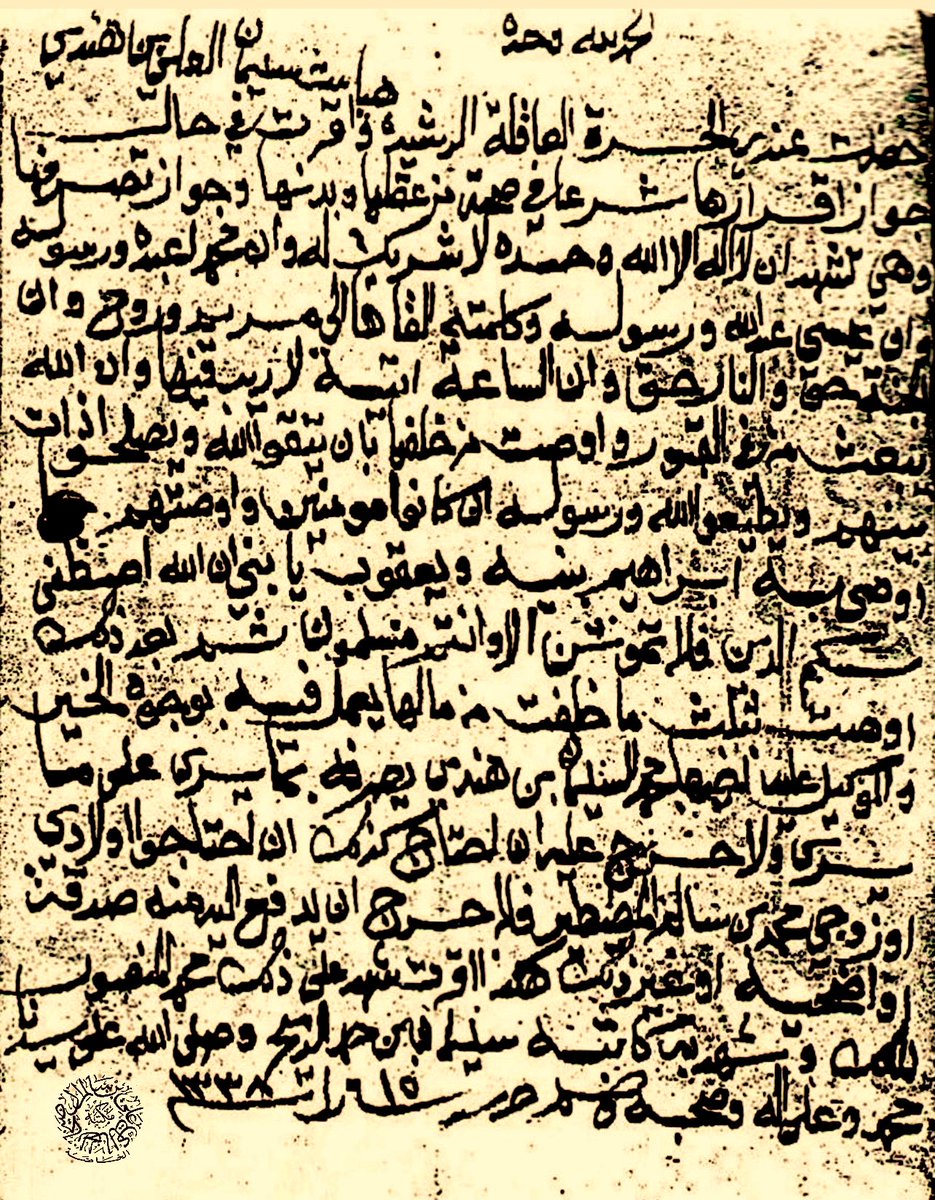 الحمد لله وحده
هيا بنت سليمان العلي بن هندي
حضرت عندي الحرة العاقلة الرشيدة واقرت في حالت
جواز اقرارها شرعا في صحة من عقلها وبدنها وجواز تصرفها
وهي تشهد ان لا اله الا الله وحده لا شريك له وان محمد عبده ورسوله
وان عيسى عبد الله ورسوله وكلمته القاها الى مريم وروح وان
الجنة حق والنار حق وان الساعة اتية لا ريب فيها وان الله
يبعث من في القبور واوصت من خلفها بان يتقو الله ويصلحو اذات
بينهم ويطيعو الله ورسوله ان كانوا مومنين واوصتهم
اوصى به ابراهيم بنيه ويعقوب يا بني ان الله اصطفى
لكم الدين فلا تموتن الا وانتم مسلمون ثم بعد ذلك
اوصت بثلث ما خلفت من مالها يعمل فيه بوجوه الخير
والوكيل على محمد السليمان بن هندي يصرفه بما يرى على ما
يرى ولا حرج عليه ان احتاج كذلك ان احتاجوا اولادي
او زوجي محمد بن سالم فلا حرج ان يدفع اليه منه صدقة
او اضحية او غير ذلك هكذا اقرت شهد على ذلك محمد المنصور
وشهد به كاتبه سليمان بن حمد وصلى الله على سيدنا
محمد وعلى اله وصحبه وسلم حرر ١٥ را ١٣٣٨